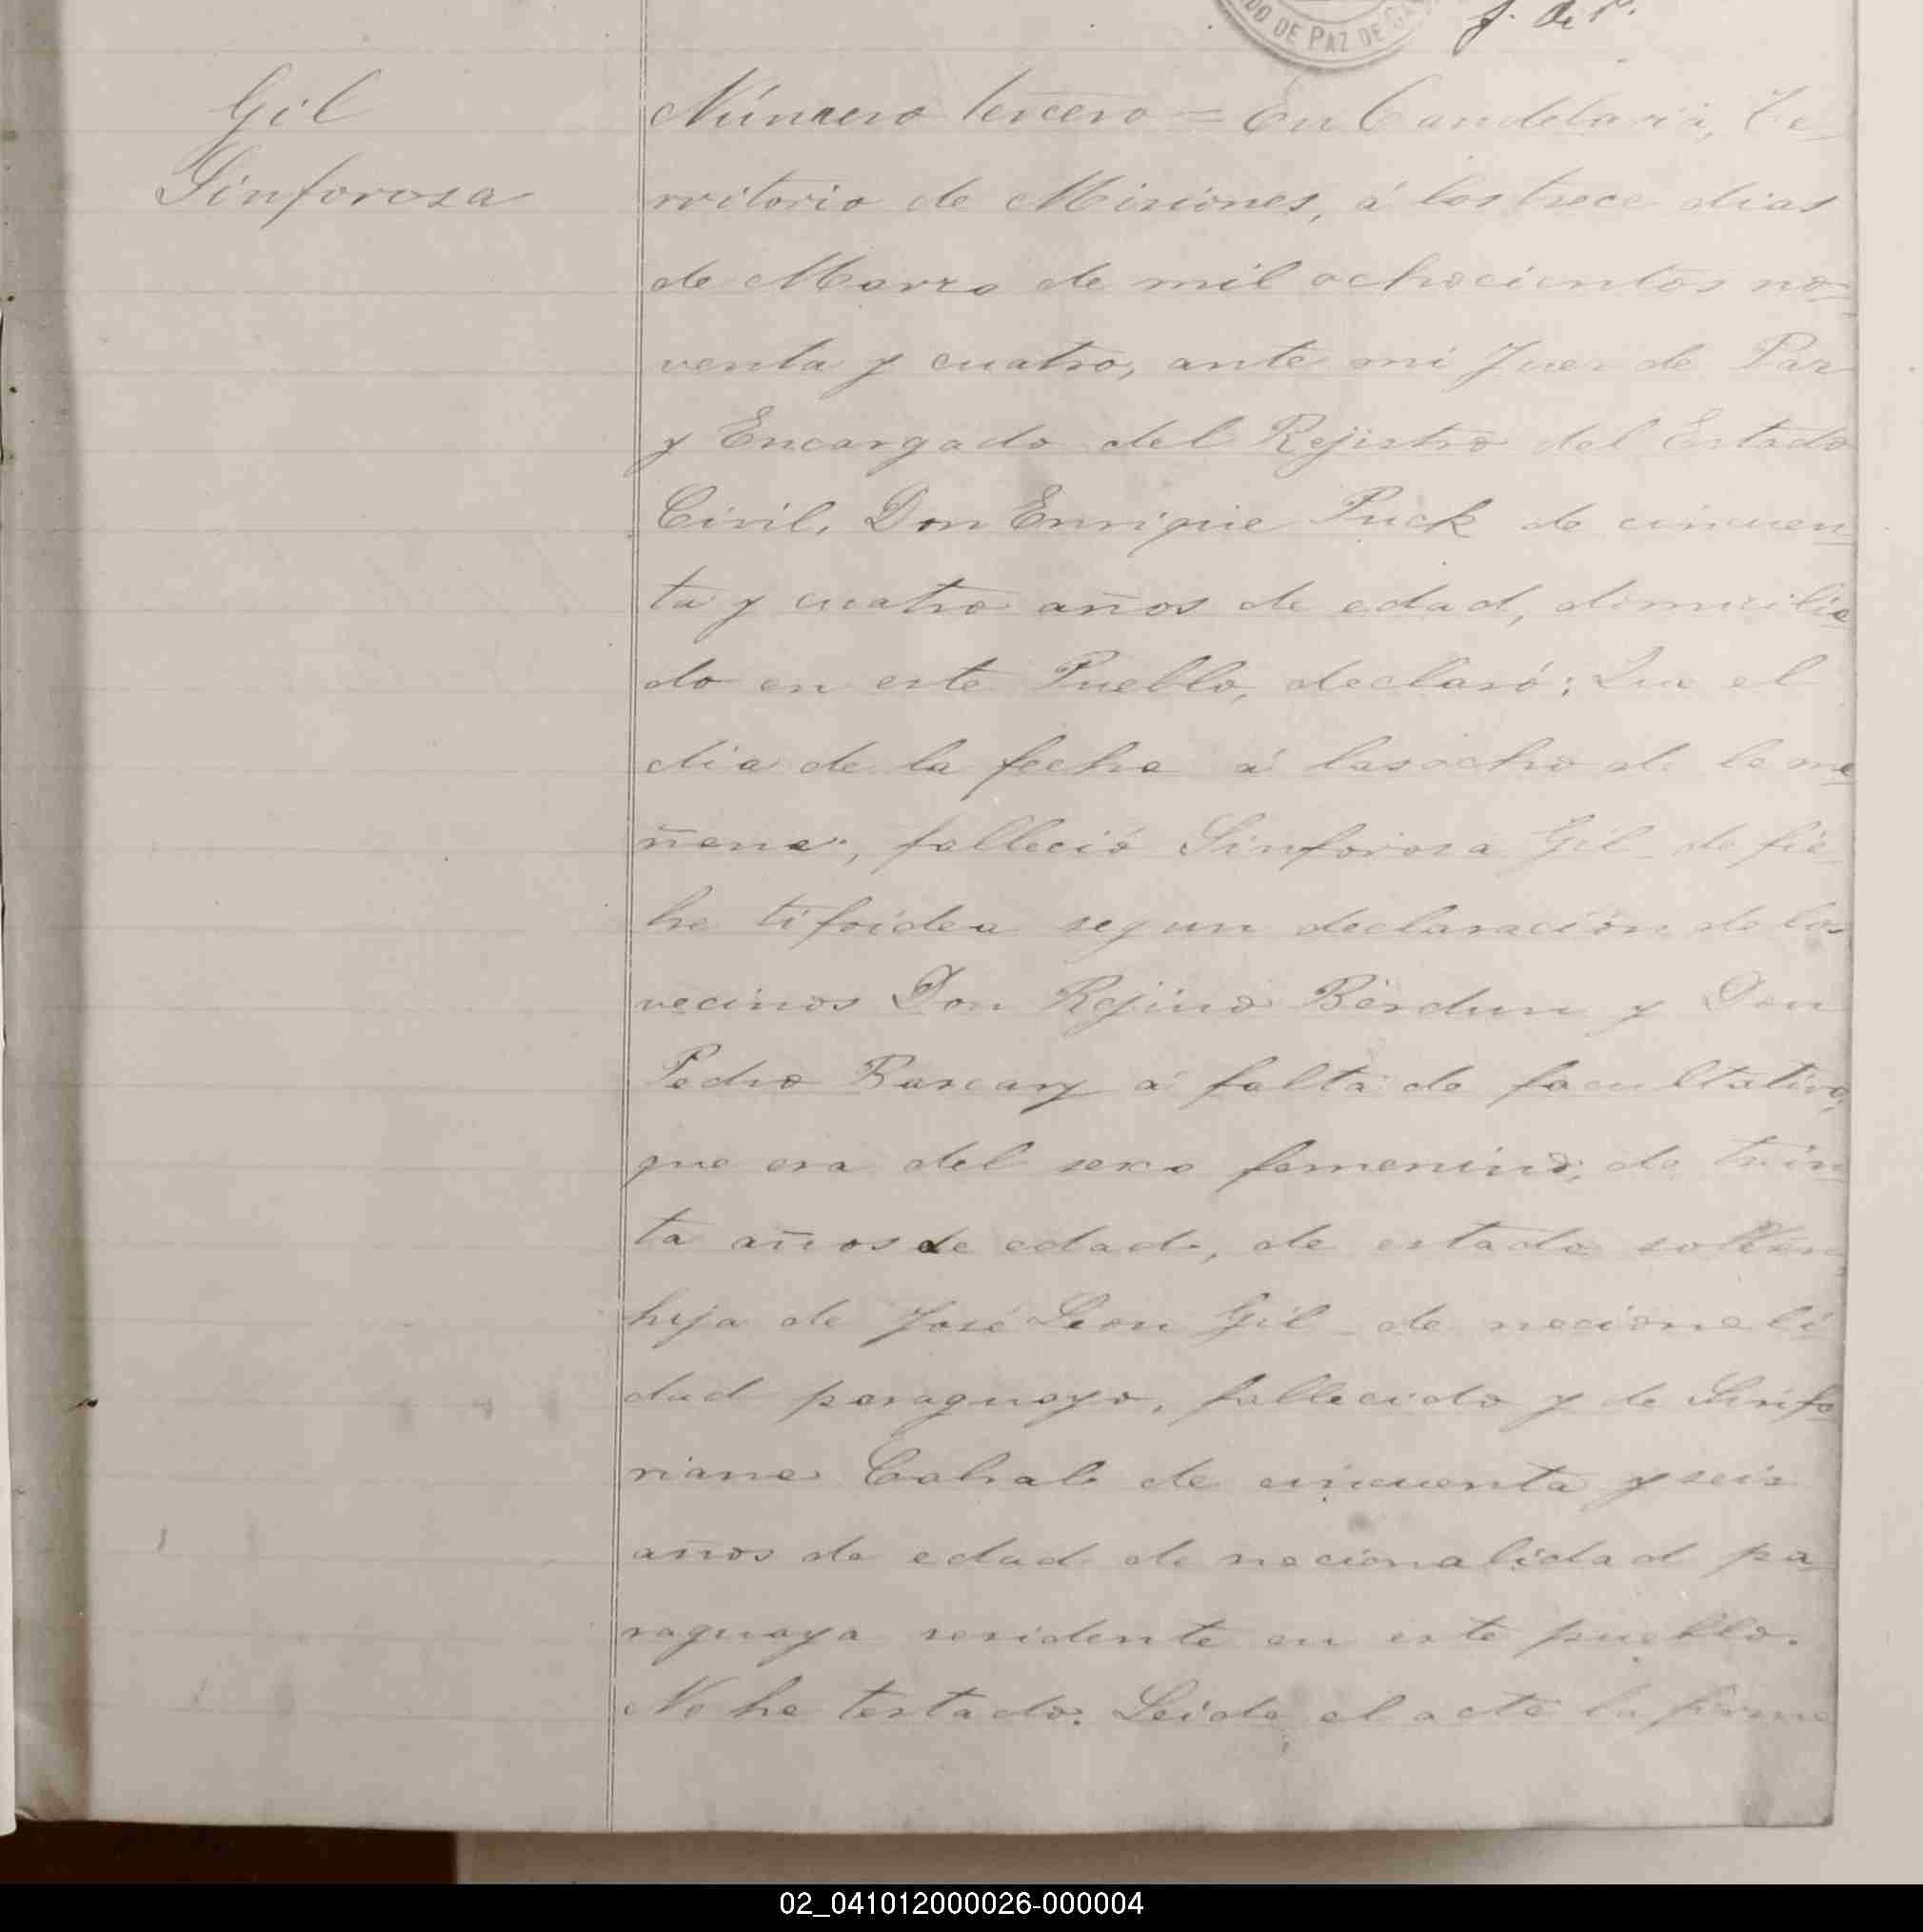 DO DE PAZ DE
J. de P.
Gil
Sinforosa
Número tercero = En Candelaria, Te
rritorio de Misiones, á los trece dias
de Marzo de mil ochocientos no-
venta y cuatro, ante mi Juez de Paz
y Encargado del Rejistro del Estado
Civil, Don Enrique Puck de cincuen-
ta y cuatro años de edad, domicilia
do en este Pueblo, declaró; Que el
dia de la fecha á las ocho de la ma
ñana, falleció Sinforosa Gil de fie-
bre tifoidea segun declaración de los
vecinos Don Rejino Berdun y Don
Pedro Bascary á falta de facultativo,
que era del sexo femenino; de trein-
ta años de edad, de estado soltera
hija de José Leon Gil de nacionali
dad paraguayo, fallecido y de Sinfo
riana Cabral de cincuenta y seis
años de edad de nacionalidad pa-
raguaya residente en este pueblo.
No ha testado. Leida el acta la firma
02_041012000026-000004